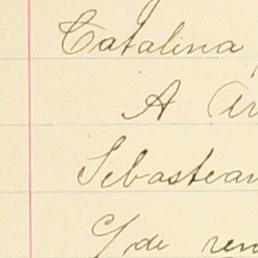 Catalina
A
Sebastean
Y de ren